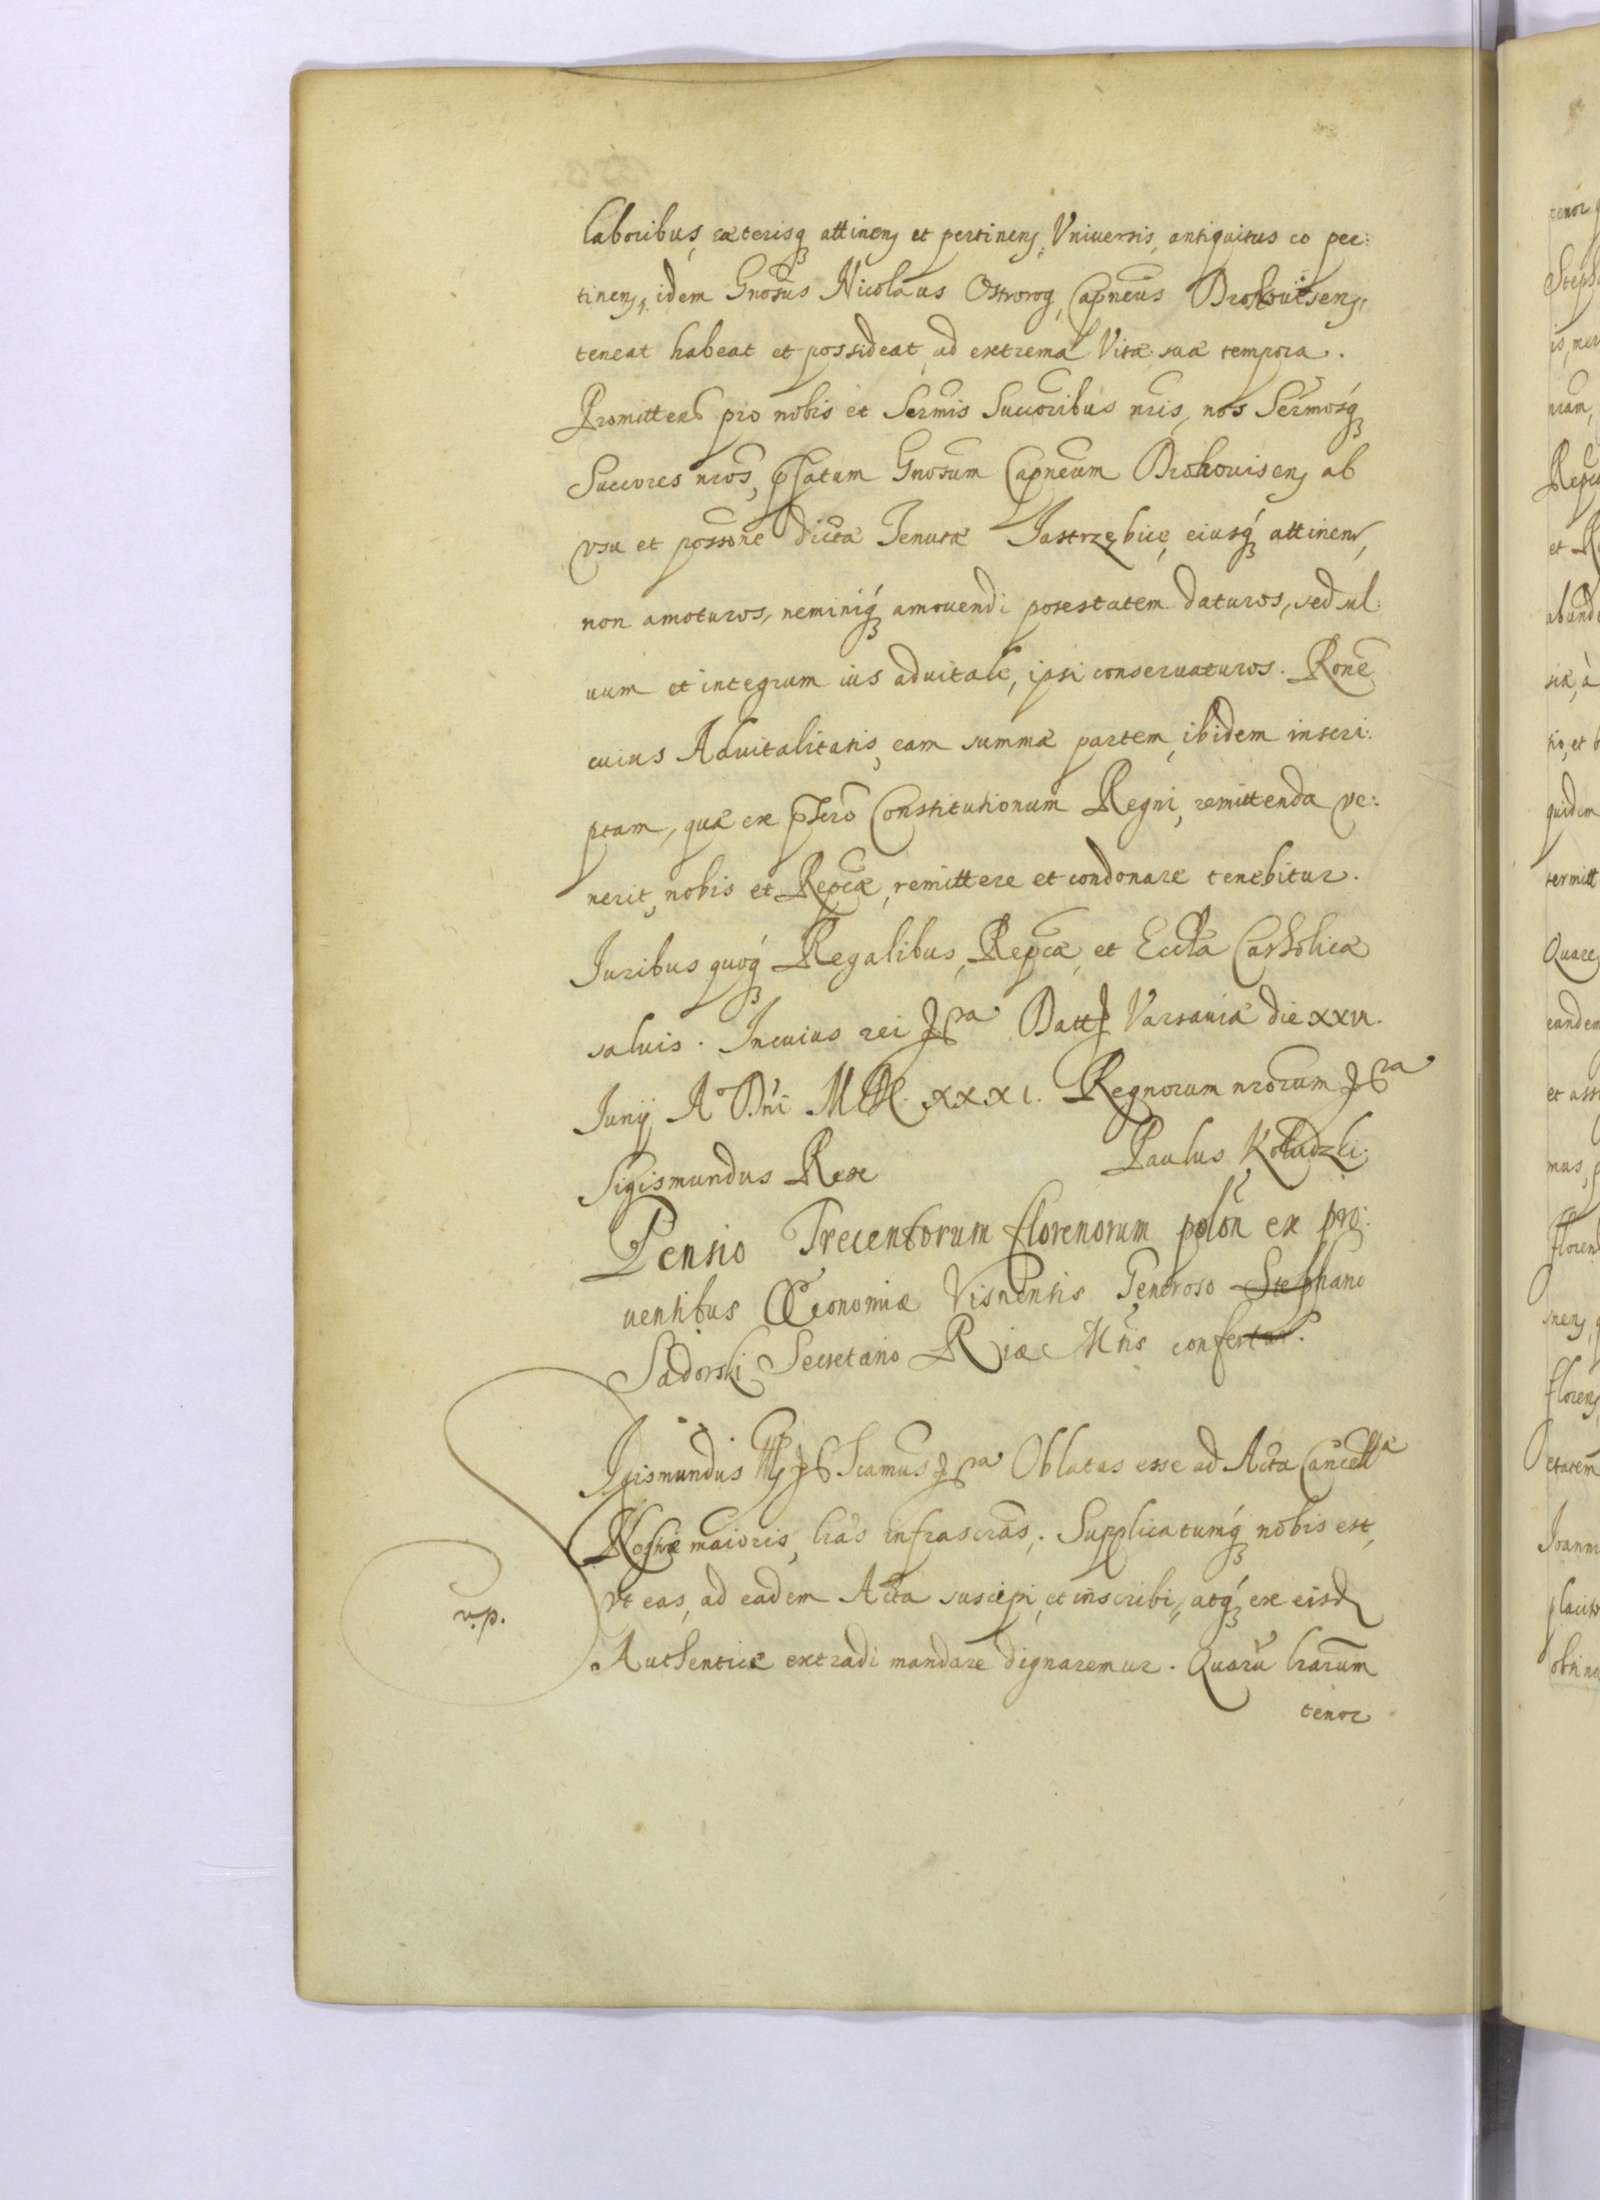 laboribus, cæterisq attinen et pertinen, Vniuersis, antiquitus eo per:
tinen, idem Gnosus Nicolaus Ostrorog, Capneus Drohouisen,
teneat habeat et possideat, ad extrema Vitæ suæ tempora.
Promitten pro nobis et Sermis Succoribus nris, nos Sermosq
Succores nros, pfatum Gnosum Capneum Drohouisen ab
vsu et possone dictæ Tenutæ Jastrzębice, eiusq attinen,
non amoturos, neminiq amouendi potestatem daturos, sed sal:
uum et integrum ius aduitale, ipsi conseruaturos. Rone
cuius Aduitalitatis, eam summæ partem, ibidem inscri:
ptam, quæ ex pscro Constitutionum Regni, remittenda ve:
nerit, nobis et Reipcæ, remittere et condonare tenebitur.
Juribus quoq Regalibus, Reipcæ, et Ecclæ Catholicæ
saluis. In cuius rei &ra Datt Varsauiæ die XXVI.
Junij A° Dni MDC. XXXI. Regnorum nrorum &ra
Sigismundus Rex Paulus Kołudzki.
Pensio Trecentorum florenorum polon ex pro:
uentibus Œconomiæ Visnensis Generoso Stephano
Sadorski Secretario Riæ Mtis confertur.
Sigismundus III & Scamus &ra Oblatas esse ad Acta Cancellæ
Nostræ maioris, lras infrascras. Supplicatumq nobis est,
vt eas, ad eadem Acta suscipi, et inscribi, atq ex eisd
v.p.
Authentice extradi mandare dignaremur. Quaru lrarum
tenor